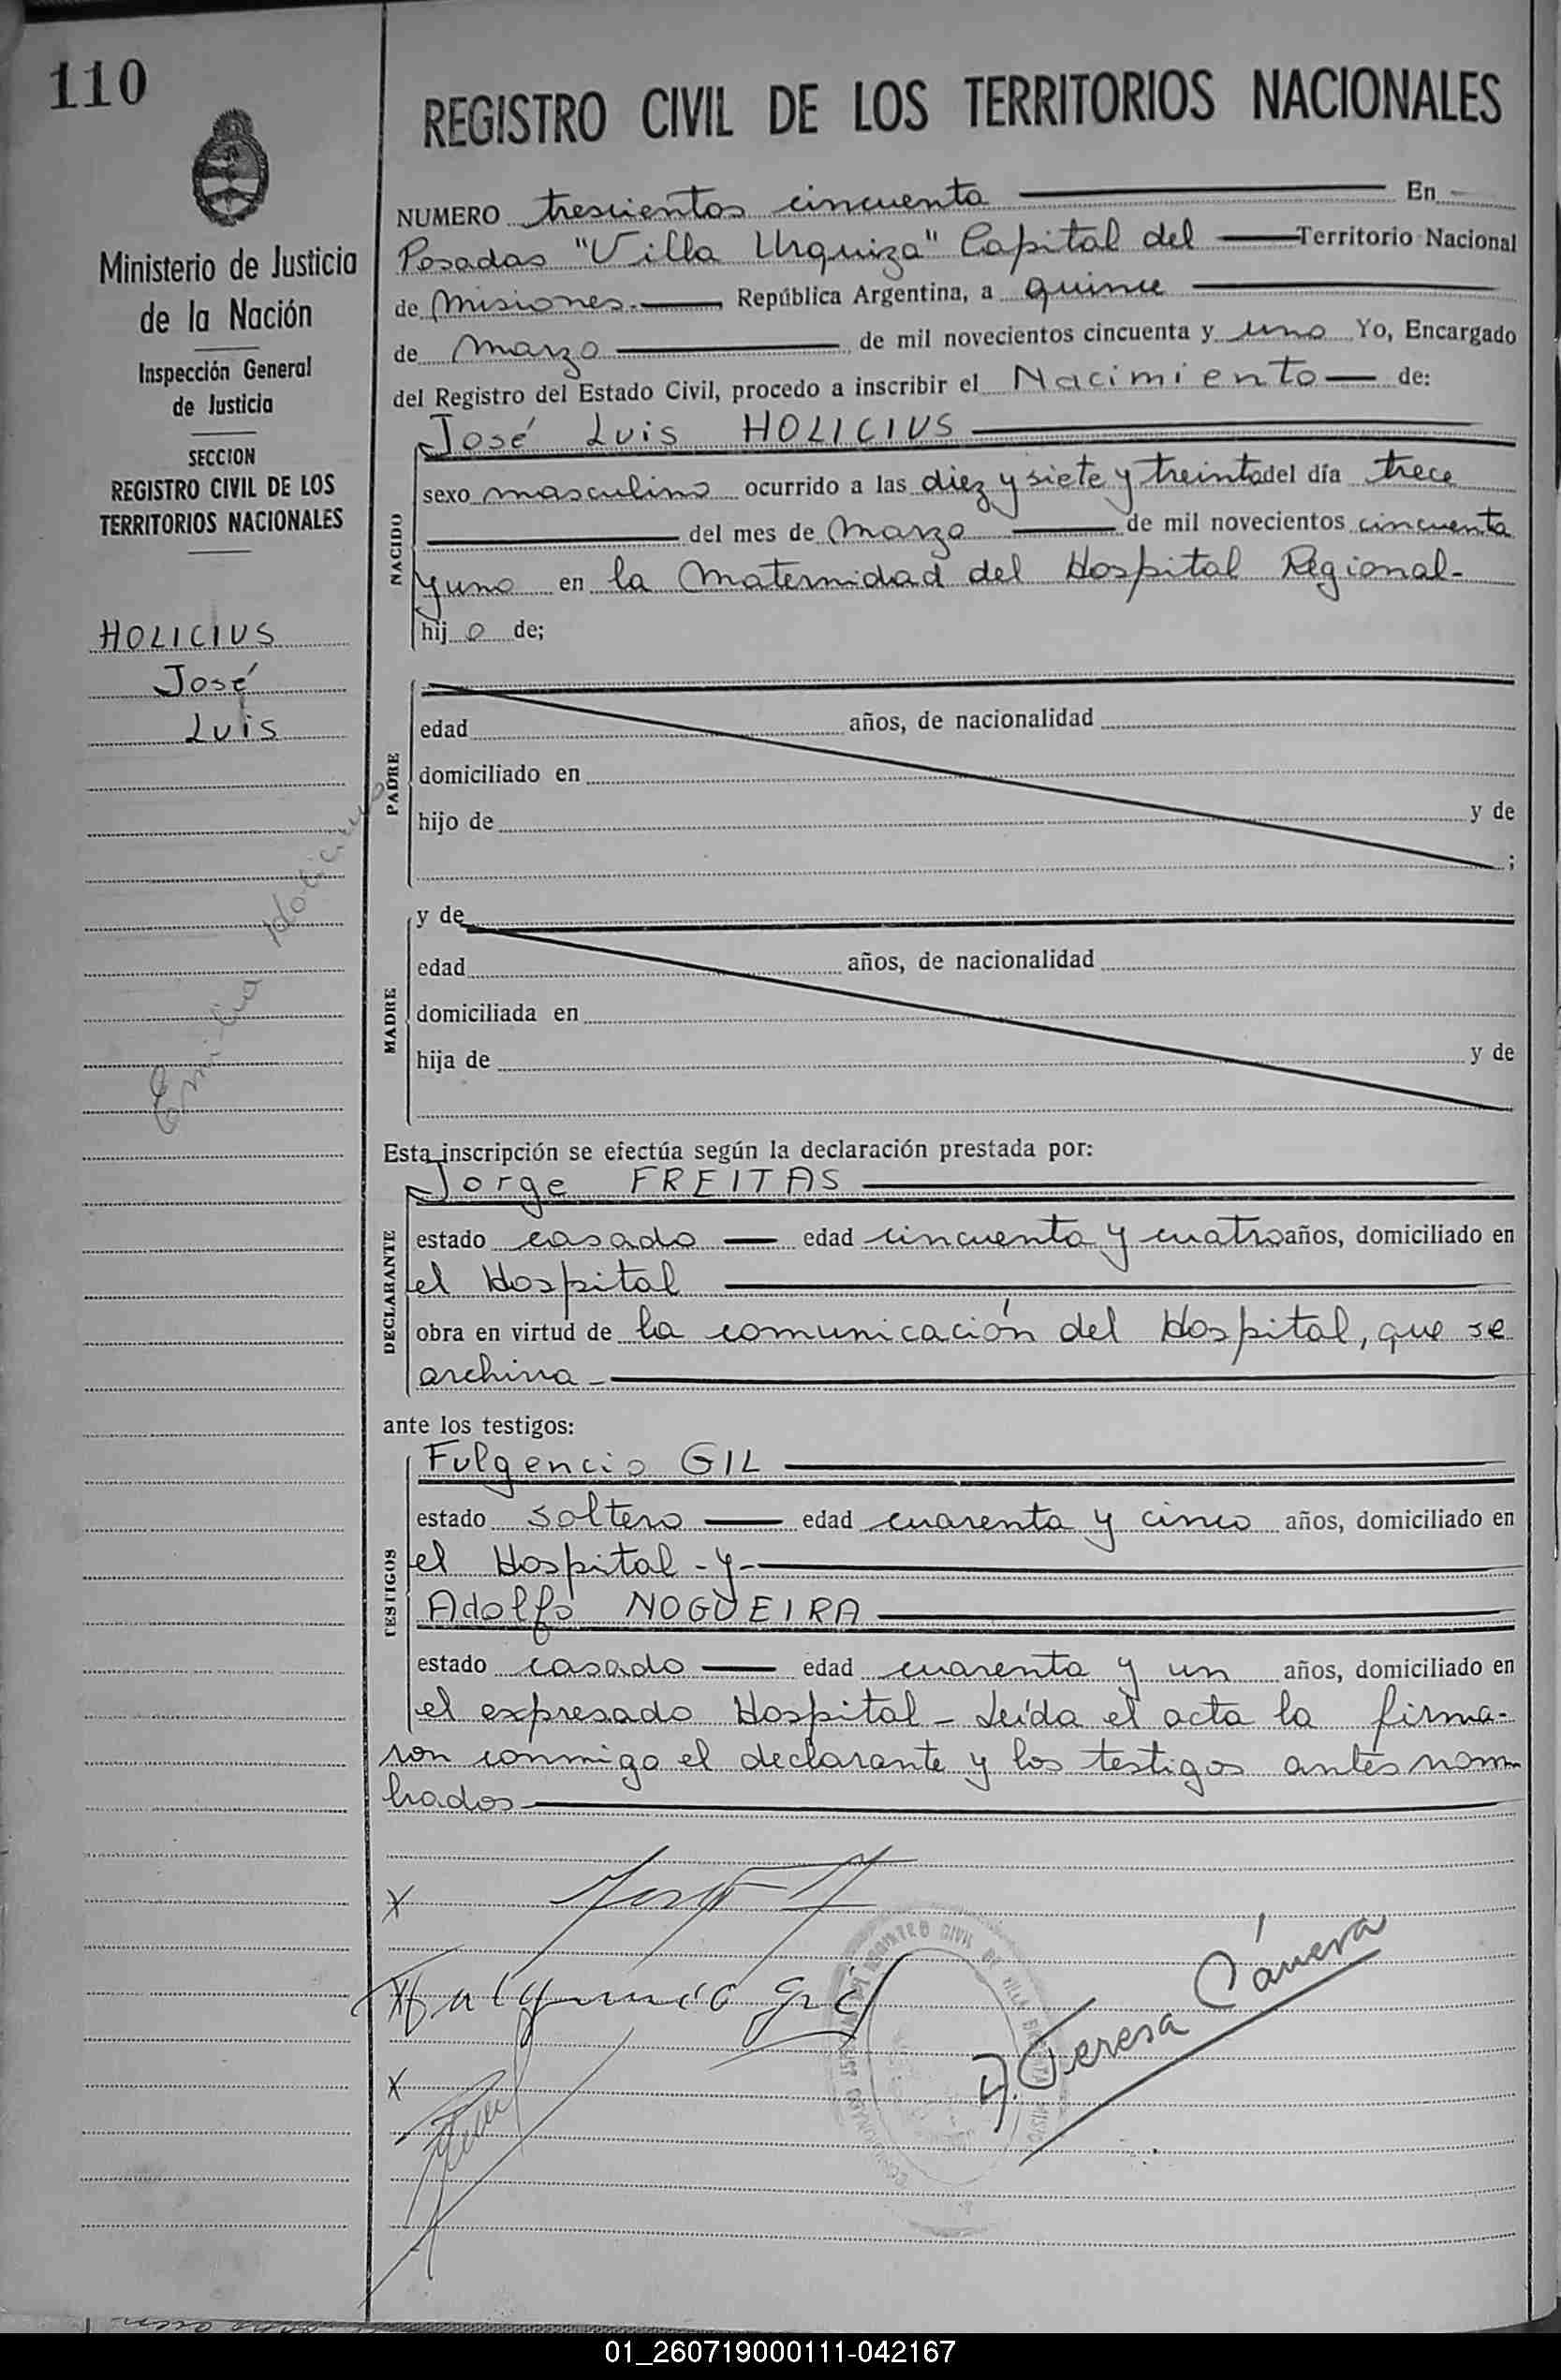 110
REGISTRO CIVIL DE LOS TERRITORIOS NACIONALES
Ministerio de Justicia
de la Nación
Inspección General
de Justicia
SECCION
REGISTRO CIVIL DE LOS
TERRITORIOS NACIONALES
HOLICIUS
José
Luis
Emilia Holicius
NUMERO trescientos cincuenta En
Posadas "Villa Urquiza" Capital del Territorio Nacional
de Misiones. República Argentina, a quince
de Marzo de mil novecientos cincuenta y uno Yo, Encargado
del Registro del Estado Civil, procedo a inscribir el Nacimiento de:
José Luis HOLICIUS
NACIDO
sexo masculino ocurrido a las diez y siete y treinta del día trece
del mes de Marzo de mil novecientos cincuenta
y uno en la Maternidad del Hospital Regional-
hij o de;
PADRE
edad años, de nacionalidad
domiciliado en
hijo de y de
;
MADRE
y de
edad años, de nacionalidad
domiciliada en
hija de y de
Esta inscripción se efectúa según la declaración prestada por:
Jorge FREITAS
DECLARANTE
estado casado edad cincuenta y cuatro años, domiciliado en
el Hospital
obra en virtud de la comunicación del Hospital, que se
archiva -
ante los testigos:
Fulgencio GIL
TESTIGOS
estado soltero edad cuarenta y cinco años, domiciliado en
el Hospital - y -
Adolfo NOGUEIRA
estado casado edad cuarenta y un años, domiciliado en
el expresado Hospital - Leída el acta la firma-
ron conmigo el declarante y los testigos antes nom-
brados
X
X Fulgencio Gil
X
A. Teresa Cánera
REGISTRO CIVIL DE VILLA
01_260719000111-042167